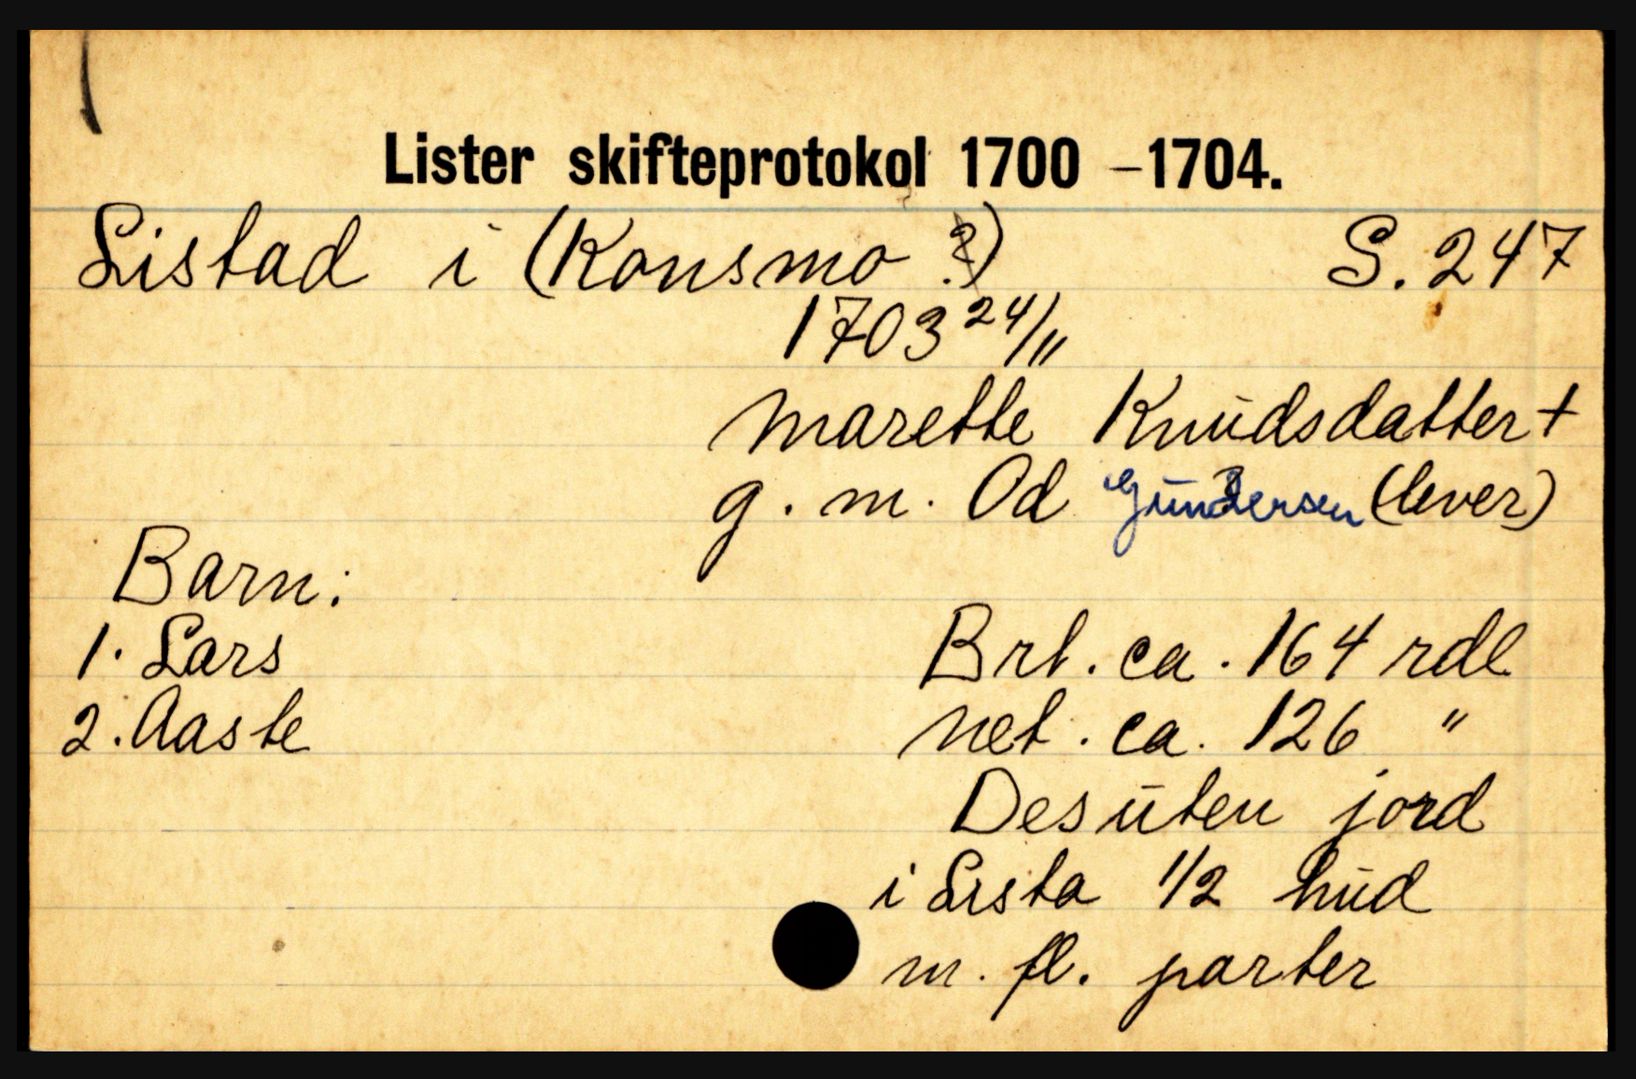 Lister skifteprotokol 1700 – 1704.
Listad i (Konsmo ?) S. 247
1703 24/11
Marette Knudsdatter +
g. m. Od Gundersen (lever)
Barn:
1. Lars Brt. ca. 164 rdl
2. Aaste net. ca. 126 "
Desuten jord
i Lista 1/2 hud
m. fl. parter